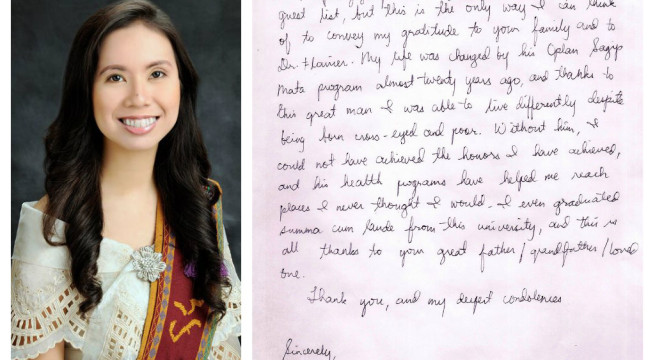 guest list, but this is the only way I can think
of to convey my gratitude to your family and to
Dr. Flavier. My life was changed by his Oplan Sagip
Mata program almost twenty years ago, and thanks to
this great man I was able to live differently despite
being born cross-eyed and poor. Without him, I
could not have achieved the honors I have achieved,
and his health programs have helped me reach
places I never thought I would. I even graduated
summa cum laude from this university, and this is
all thanks to your great father/grandfather/loved
one.
Thank you, and my deepest condolences
Sincerely,